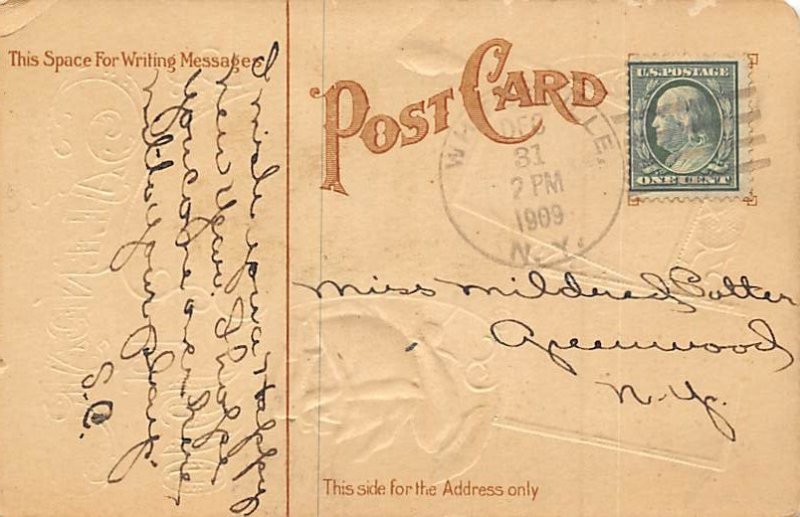 This Space For Writing Messages
POST CARD
U.S. POSTAGE
ONE CENT
DEC
31
2 PM
1909
N.Y.
I wish you a Happy
New Year. I hope
you come over here
play
S.C.
Miss Mildred Potter
Greenwood
N.Y.
This side for the Address only